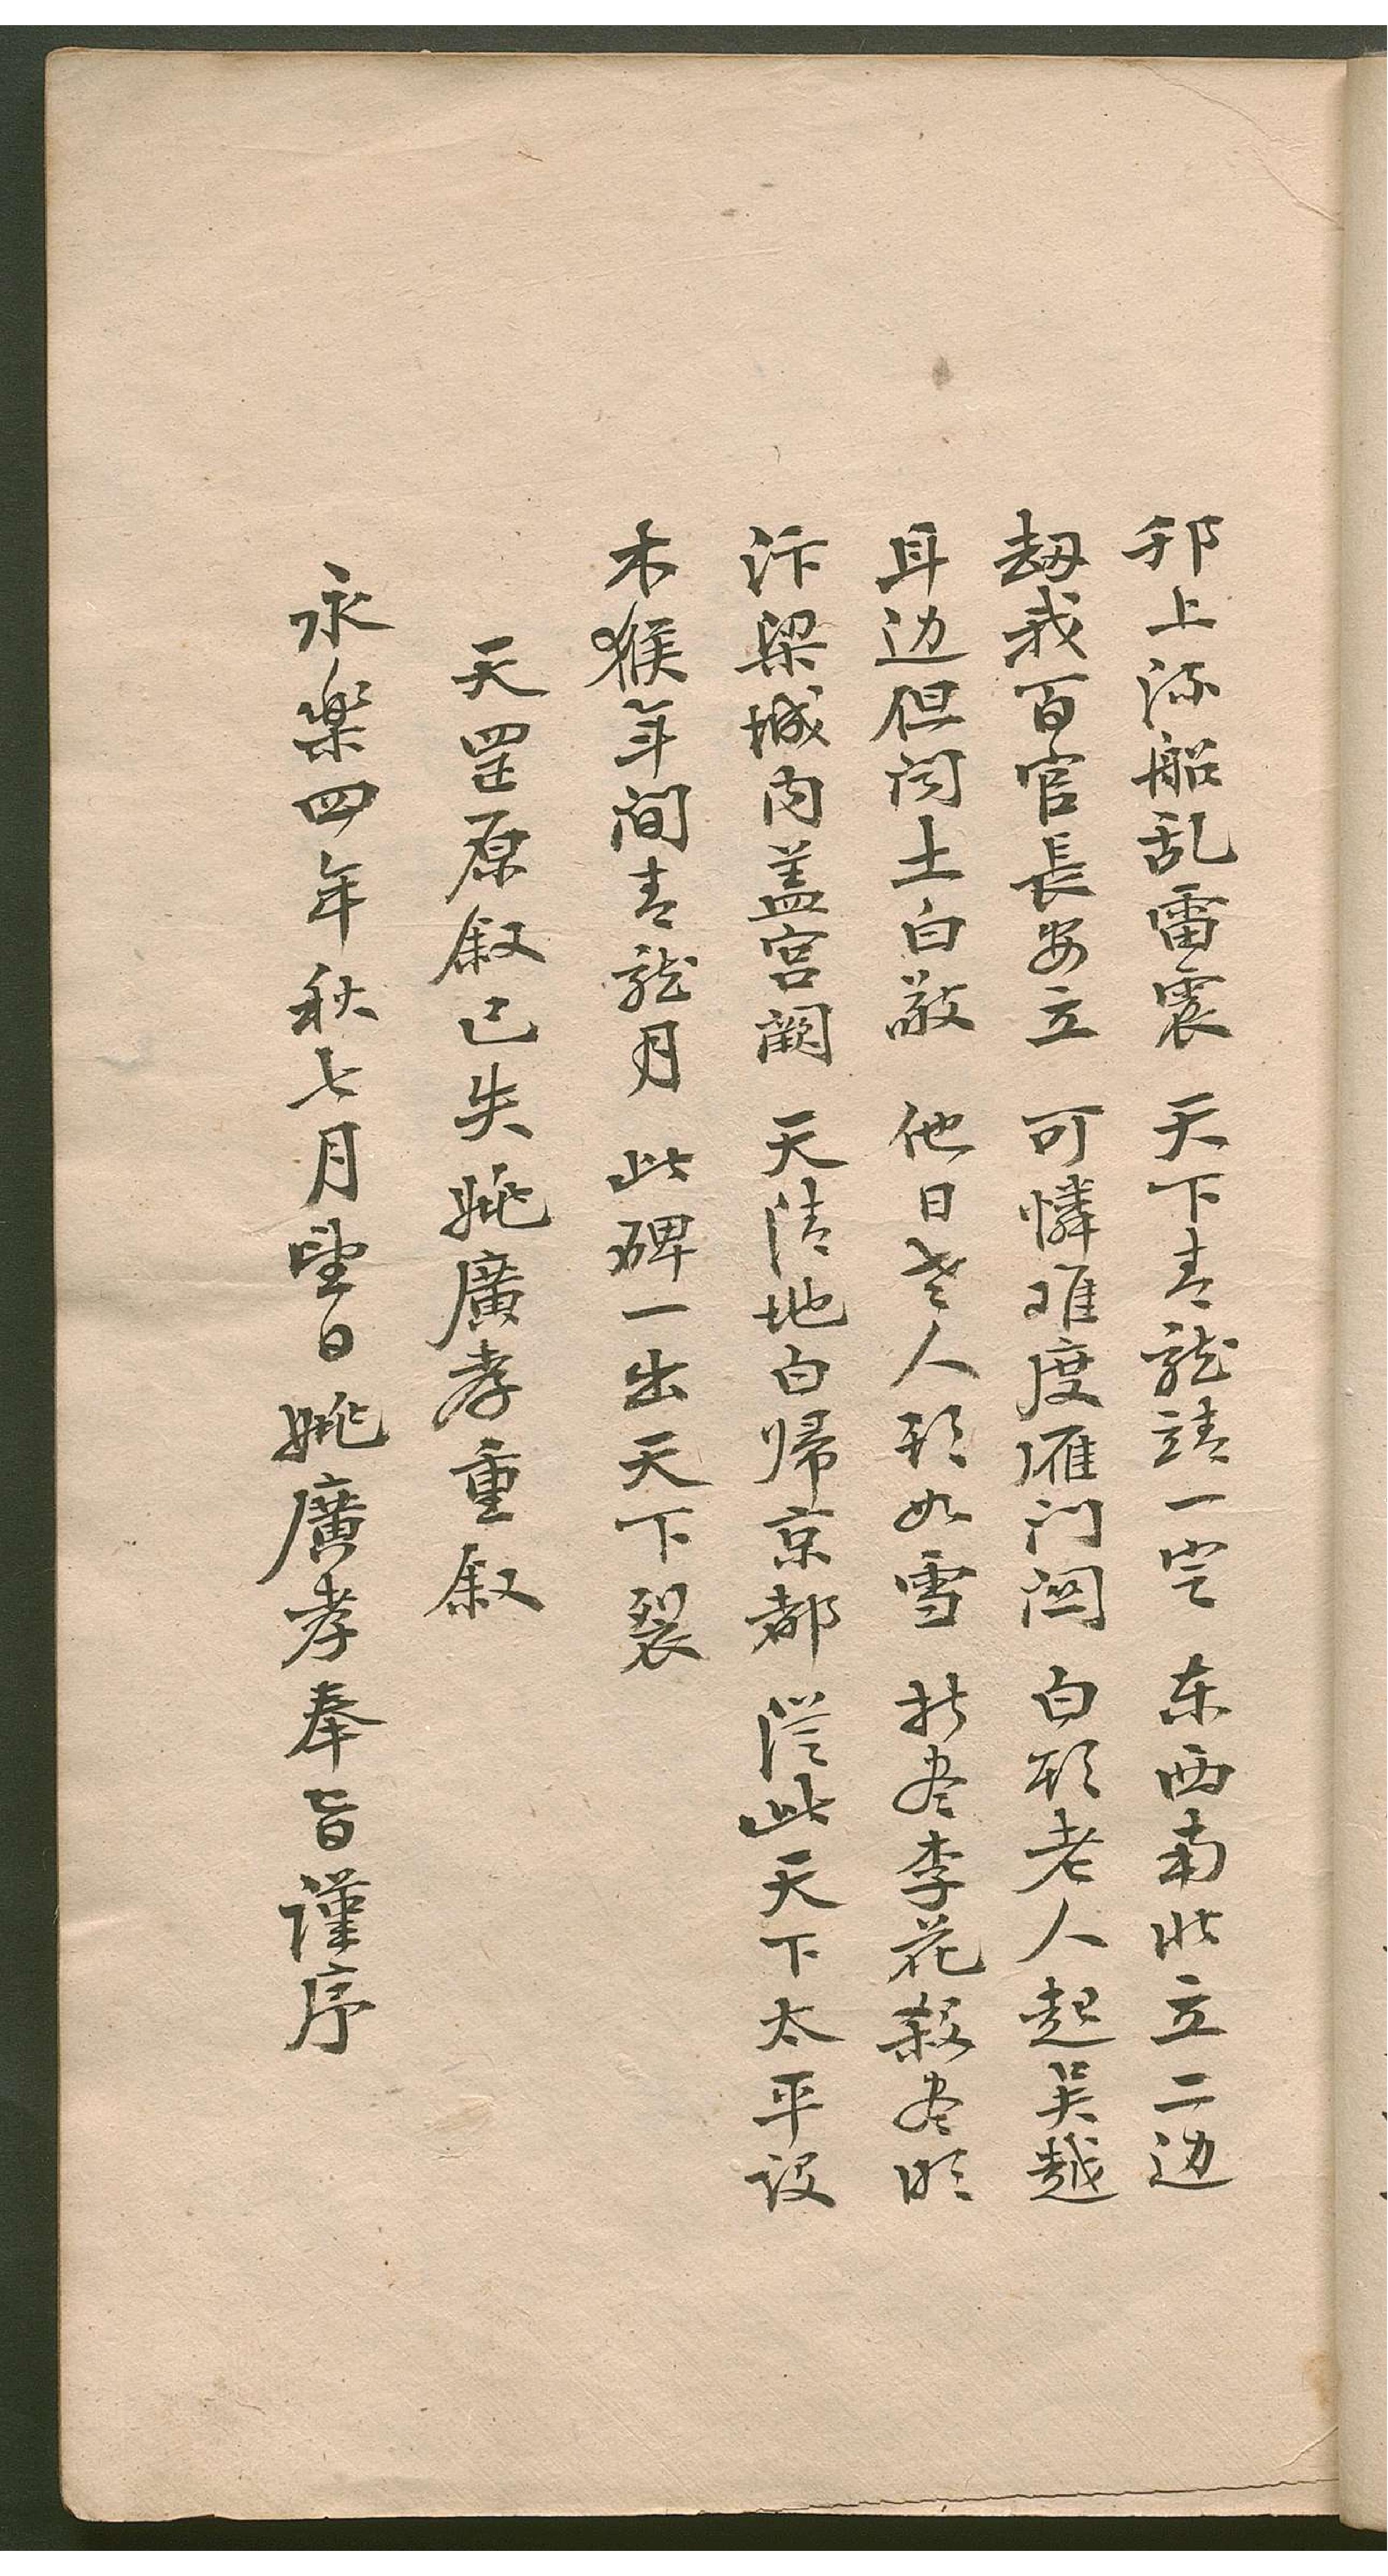 邗上添船乱雷震 天下青龍請一㝎 东西南北立二边
刼我百官長安立 可憐难度雁门関 白形老人起吴越
耳边但闻土白敲 他日老人形如雪 折尽李花殺尽
汴梁城内盖宫闕 天清地白帰京都 従此天下太平设
木猴年间青龍月 此碑一出天下裂
天罡原叙已失姚廣孝重叙
永楽四年秋七月望日姚廣孝奉旨谨序